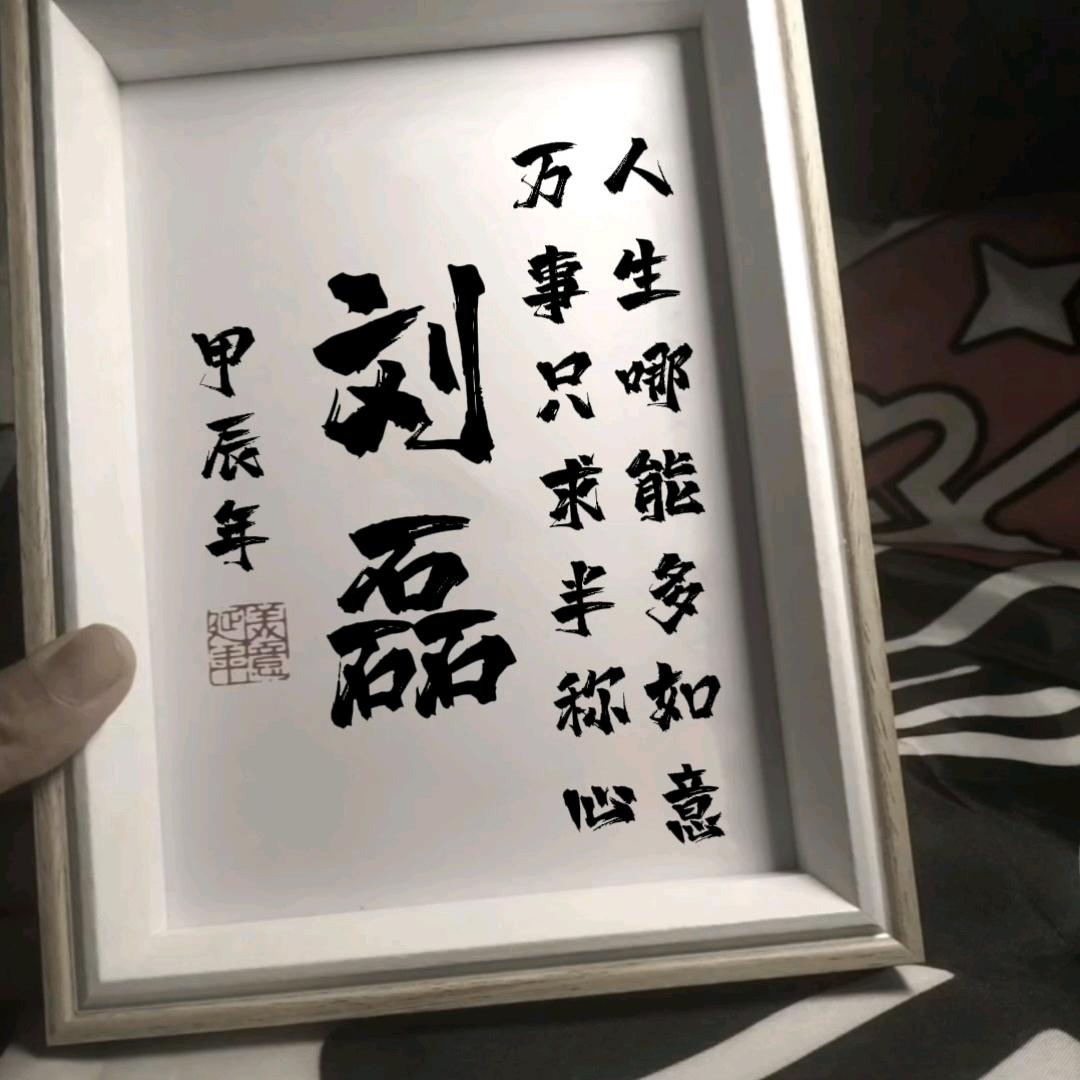 人生哪能多如意
万事只求半称心
刘磊
甲辰年
美意延年